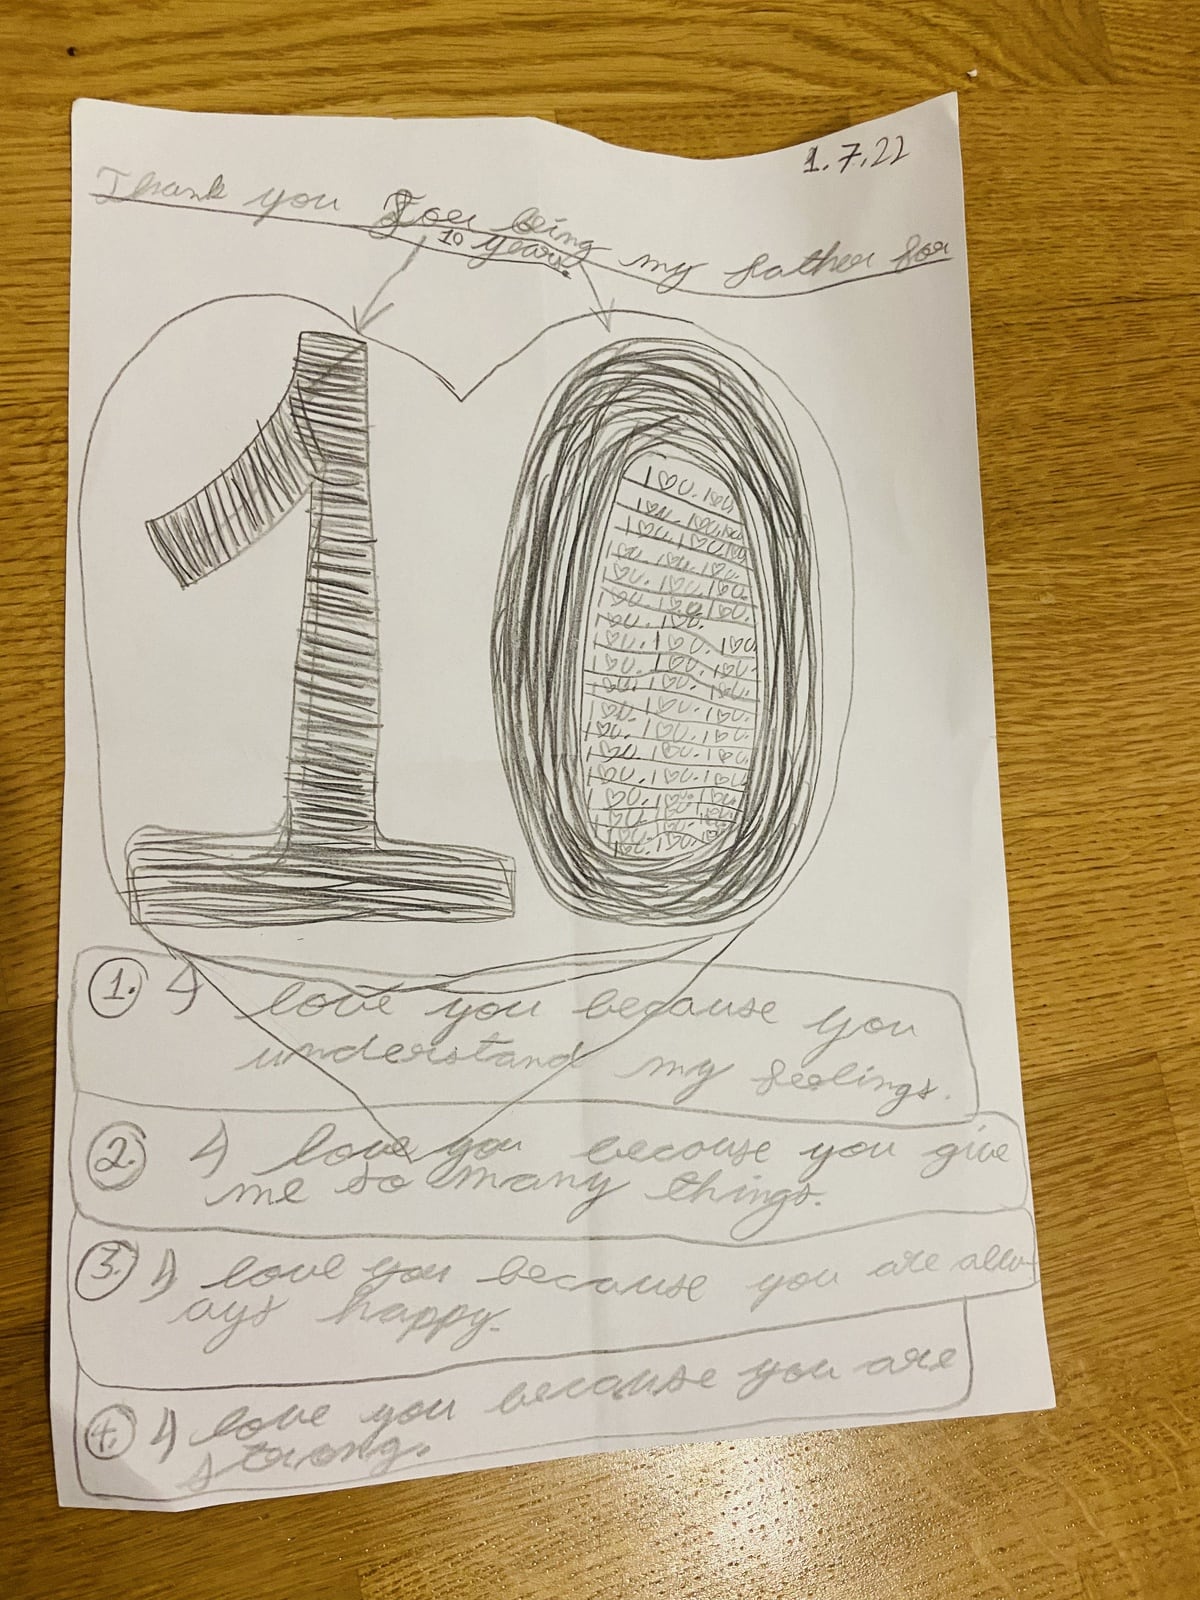 1.7.22
Thank you for being my father for
10 years.
10
I♡U. I♡U
I♡U. I♡U. I♡U
I♡U. I♡U. I♡U
I♡U. I♡U. I♡U.
I♡U. I♡U I♡U.
I♡U I♡U I♡U.
I♡U. I♡U.
I♡U. I♡U. I♡U
I♡U. I♡U. I♡U.
I♡U. I♡U. I♡U.
I♡U. I♡U. I♡U.
I♡U. I♡U. I♡U.
I♡U. I♡U. I♡U
I♡U. I♡U. I♡U
I♡U. I♡U. I♡U
1. I love you because you
understand my feelings.
2. I love you because you give
me so many things.
3. I love you because you are allw-
ays happy.
4. I love you because you are
strong.